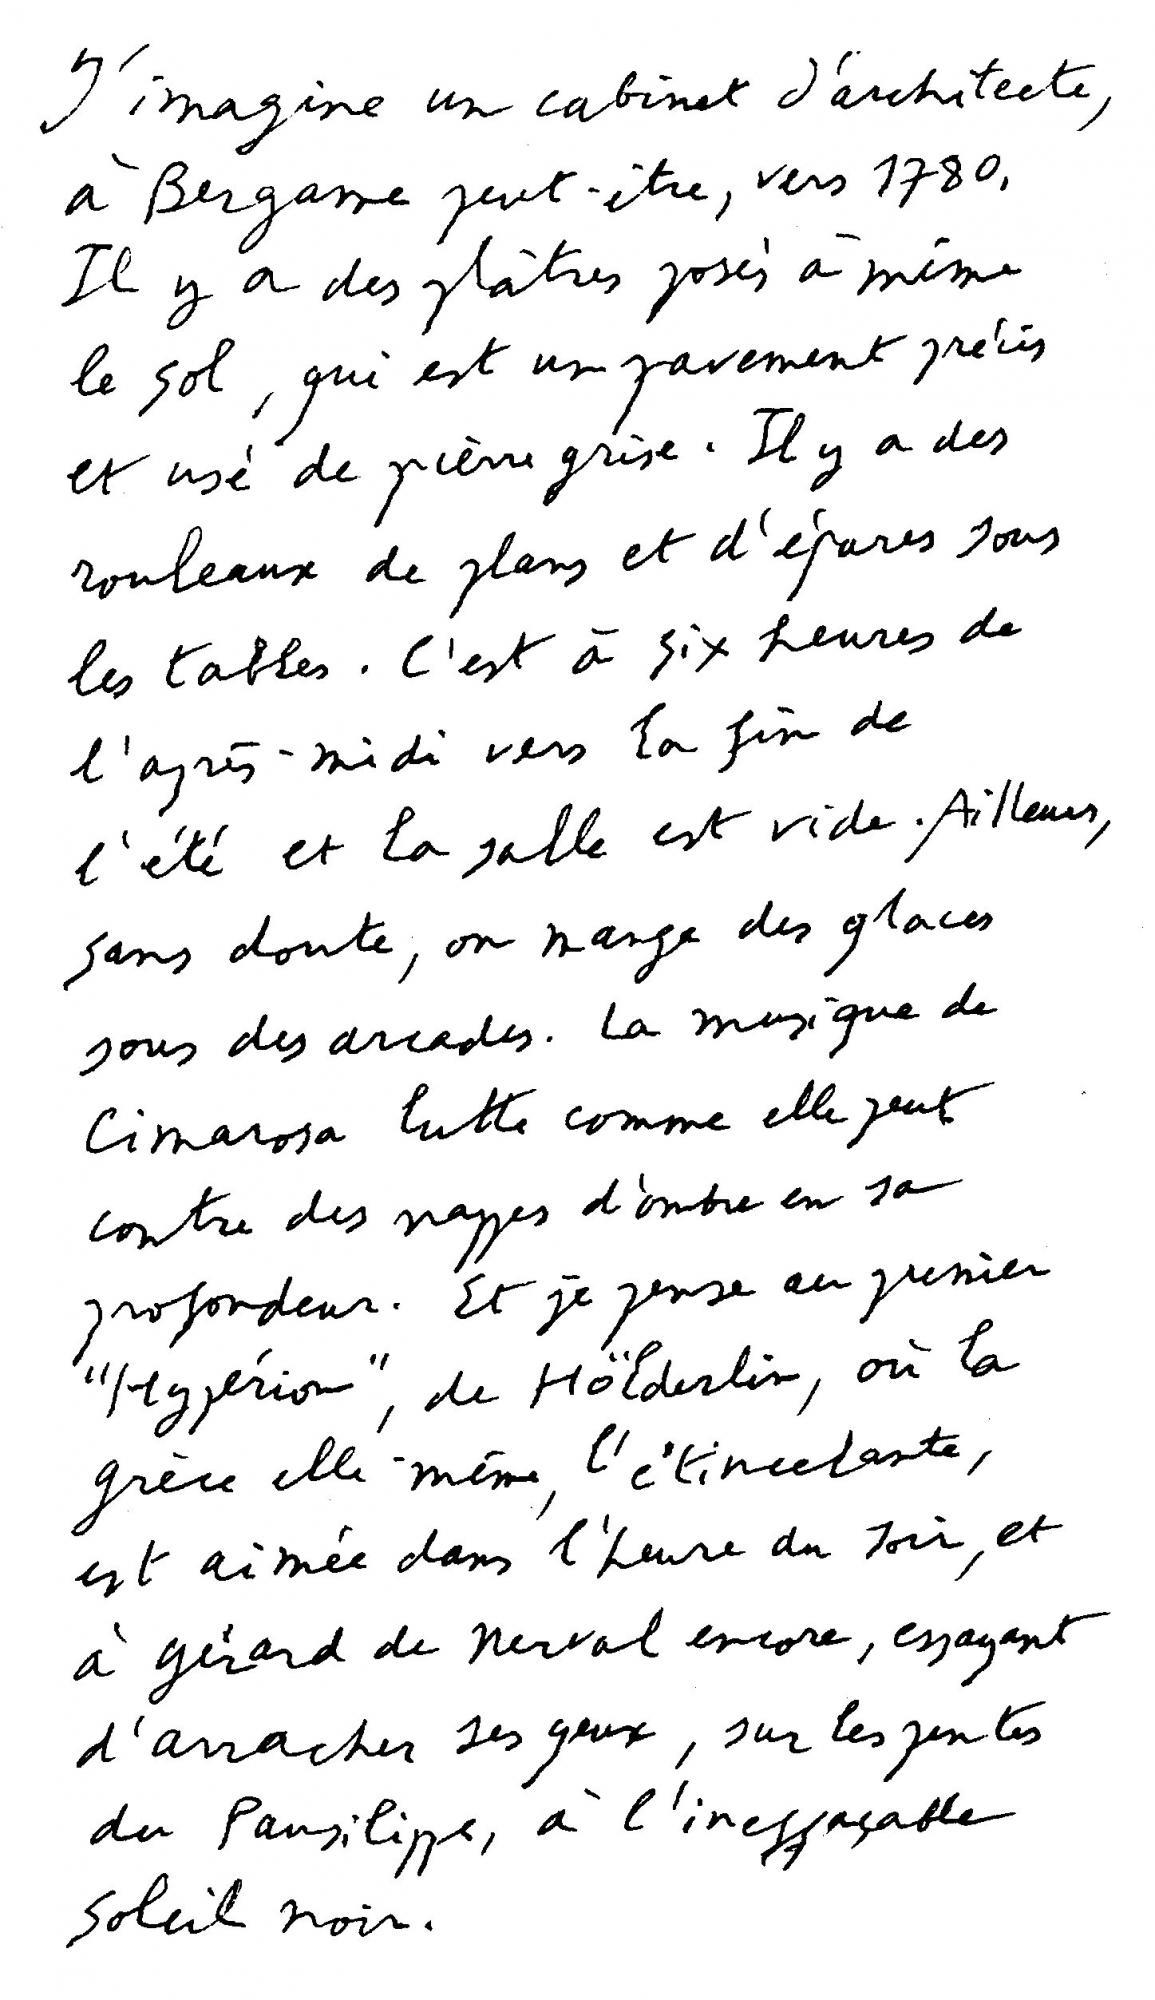 J'imagine un cabinet d'architecte,
à Bergame peut-être, vers 1780.
Il y a des plâtres posés à même
le sol, qui est un pavement précis
et usé de pierre grise. Il y a des
rouleaux de plans et d'épures sous
les tables. C'est à six heures de
l'après-midi vers la fin de
l'été et la salle est vide. Ailleurs,
sans doute, on mange des glaces
sous des arcades. La musique de
Cimarosa lutte comme elle peut
contre des nappes d'ombre en sa
profondeur. Et je pense au premier
"Hypérion", de Hölderlin, où la
grèce elle-même, l'étincelante,
est aimée dans l'heure du soir, et
à Gérard de Nerval encore, essayant
d'arracher ses yeux, sur les pentes
du Pausilippe, à l'ineffaçable
soleil noir.